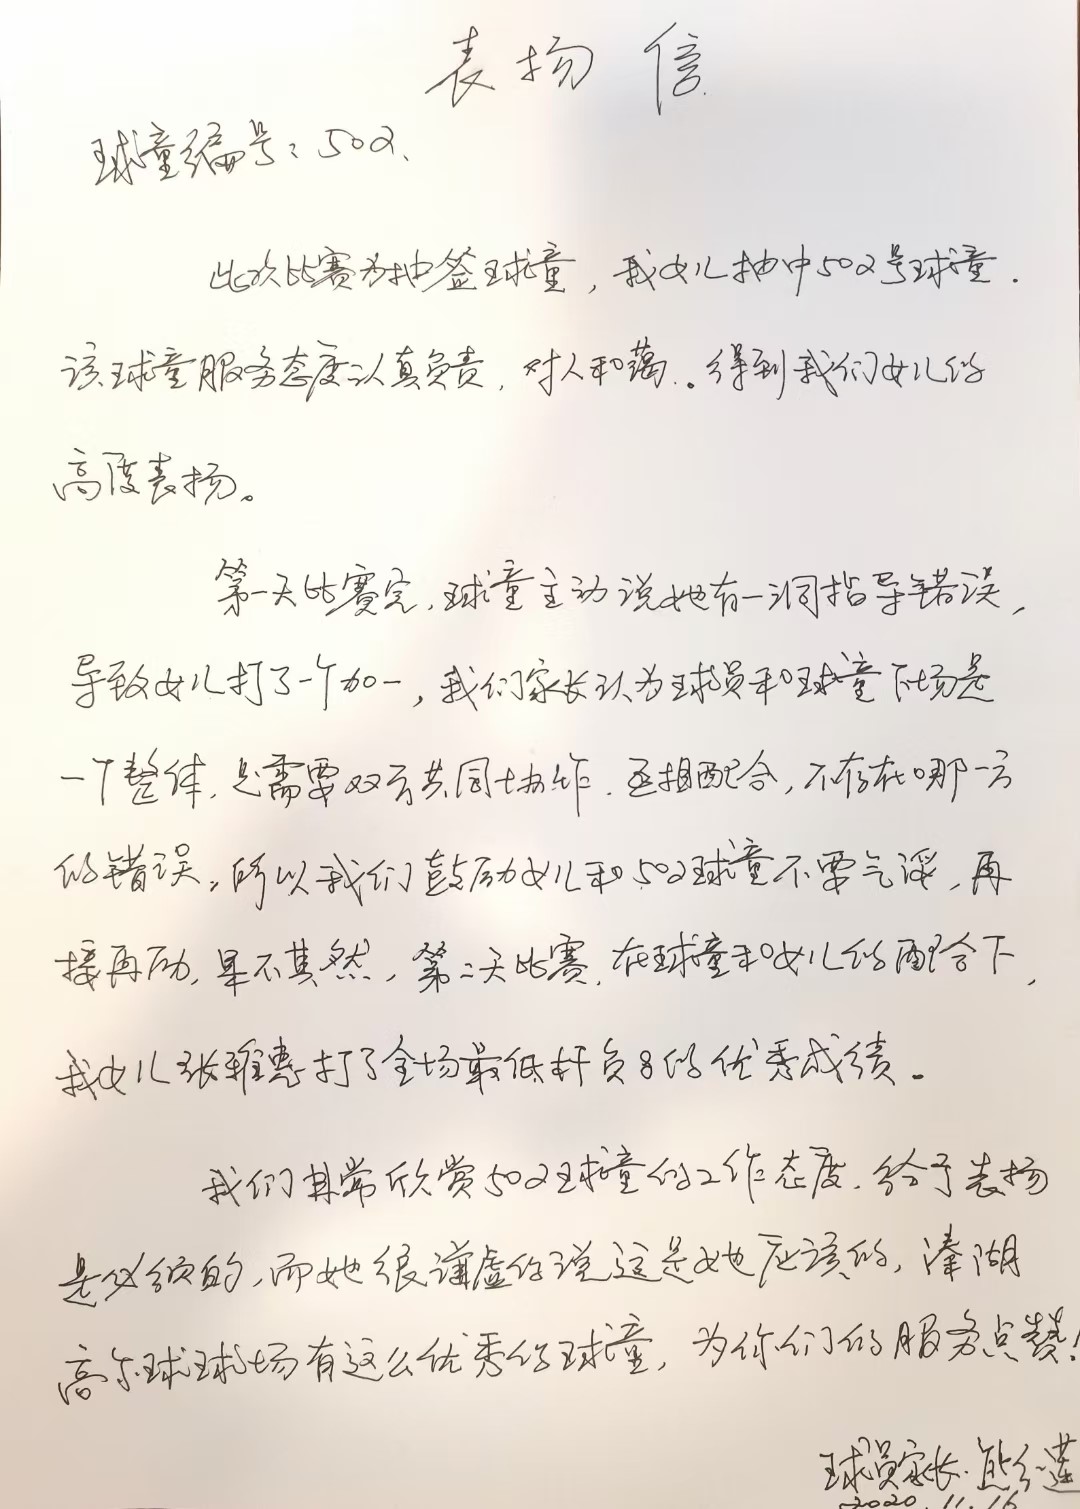 表扬信
球童编号：502、
此次比赛为抽签球童，我女儿抽中502号球童.
该球童服务态度认真负责，对人和蔼.。得到我们女儿的
高度表扬。
第一天比赛完，球童主动说她有一洞指导错误，
导致女儿打了一个加一，我们家长认为球员和球童下场是
一个整体，是需要双方共同协作.互相配合，不存在哪一方
的错误。所以我们鼓励女儿和502球童不要气馁，再
接再励，果不其然，第二天比赛，在球童和女儿的配合下，
我女儿张雅惠打了全场最低杆负8的优秀成绩.
我们非常欣赏502球童的工作态度.给予表扬
是必须的，而她很谦虚的说这是她应该的，溱湖
高尔球球场有这么优秀的球童，为你们的服务点赞！
球员家长.熊 莲
2020.11.16